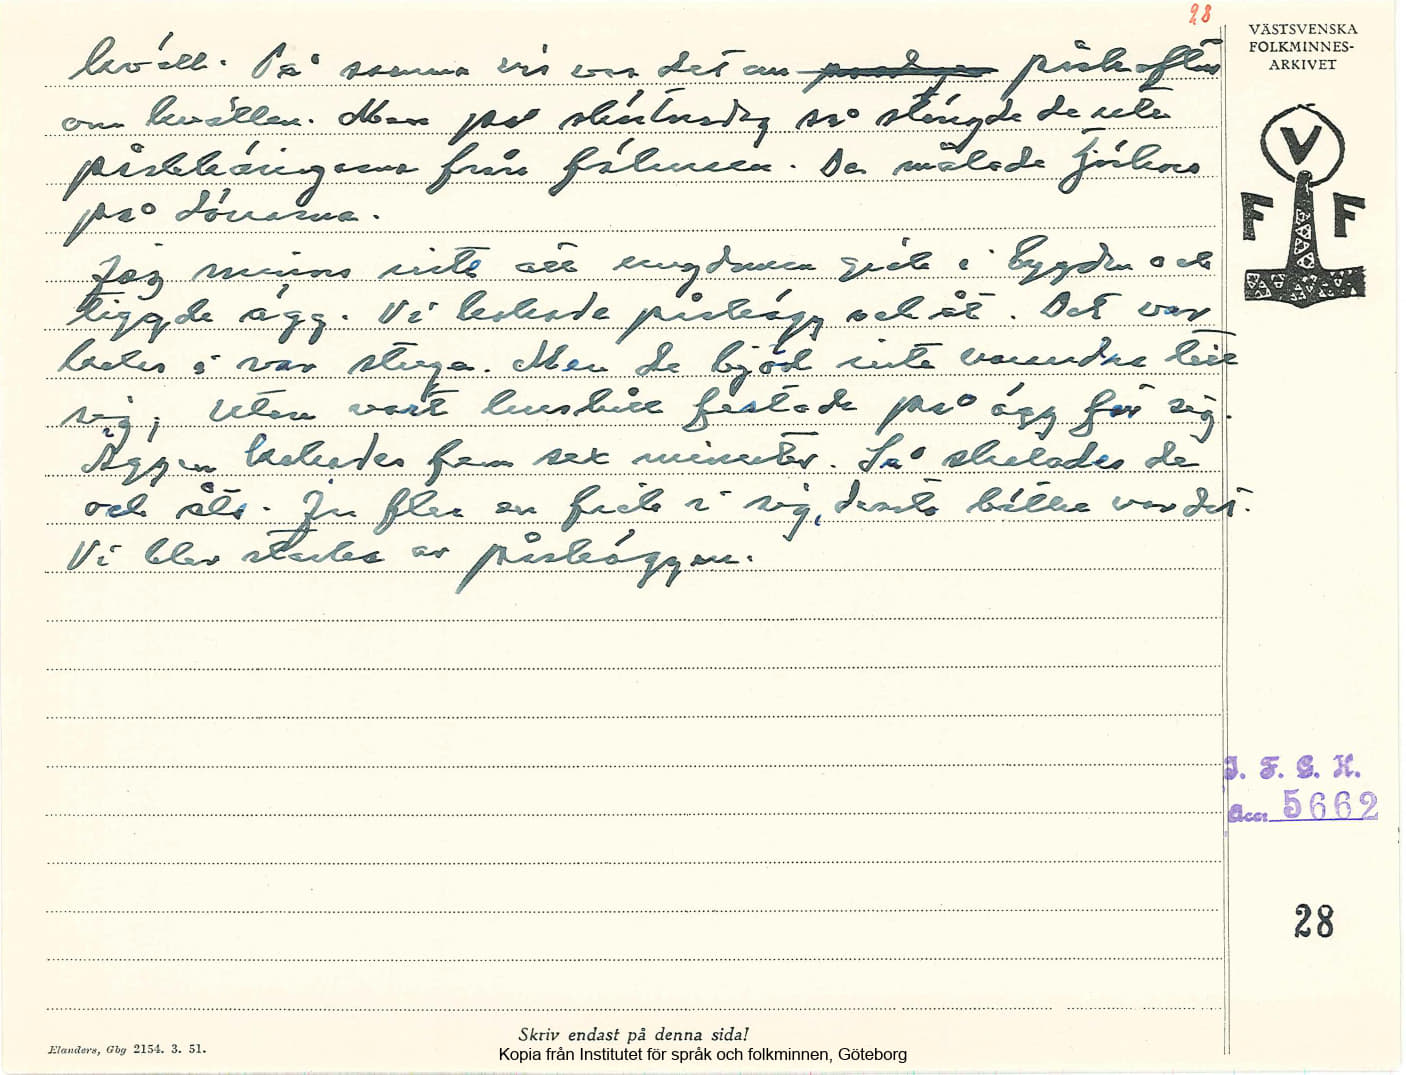 28
VÄSTSVENSKA
FOLKMINNES-
ARKIVET
kväll. På samma vis var det om påskafton
om kvällen. Men på skärtorsdag så stängde de ute
påskkäringarna från fähusen. De målade tjärkors
på dörrarna.
Jag minns inte att ungdomen gick i bygden och
tiggde ägg. Vi kokade påskägg och åt. Det var
kalas i var stuga. Men de bjöd inte varandra till
sig, utan vart hushåll festade på ägg för sig.
Äggen kokades fem sex minuter. Så skalades de
och åts. Ju fler en fick i sig, desto bättre var det.
Vi blev starka av påskäggen.
V
F F
I. F. G. H.
Acc: 5662
28
Skriv endast på denna sida!
Elanders, Gbg 2154. 3. 51.
Kopia från Institutet för språk och folkminnen, Göteborg